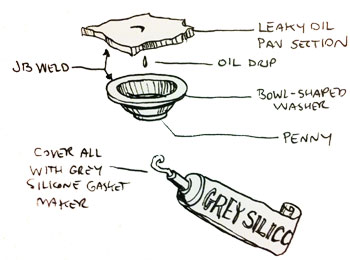 LEAKY OIL
PAN SECTION
JB WELD
OIL DRIP
BOWL-SHAPED
WASHER
PENNY
COVER ALL
WITH GREY
SILICONE GASKET
MAKER
GREY SILICC